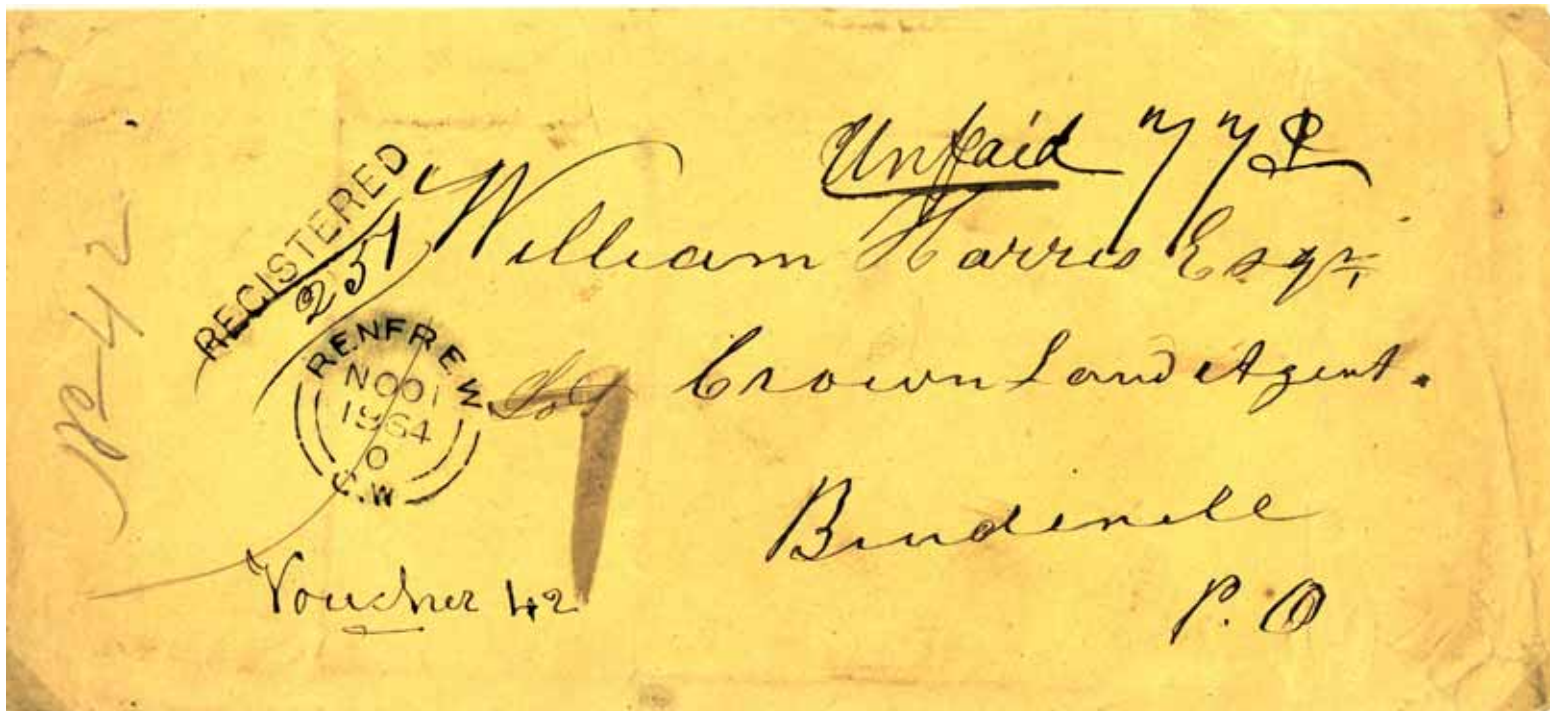 Unpaid 77
REGISTERED
251
William Harris Esqr
RENFREW
1864
0
C.W
Crown Land Agent.
Brudenell
P. O
Voucher 42
42